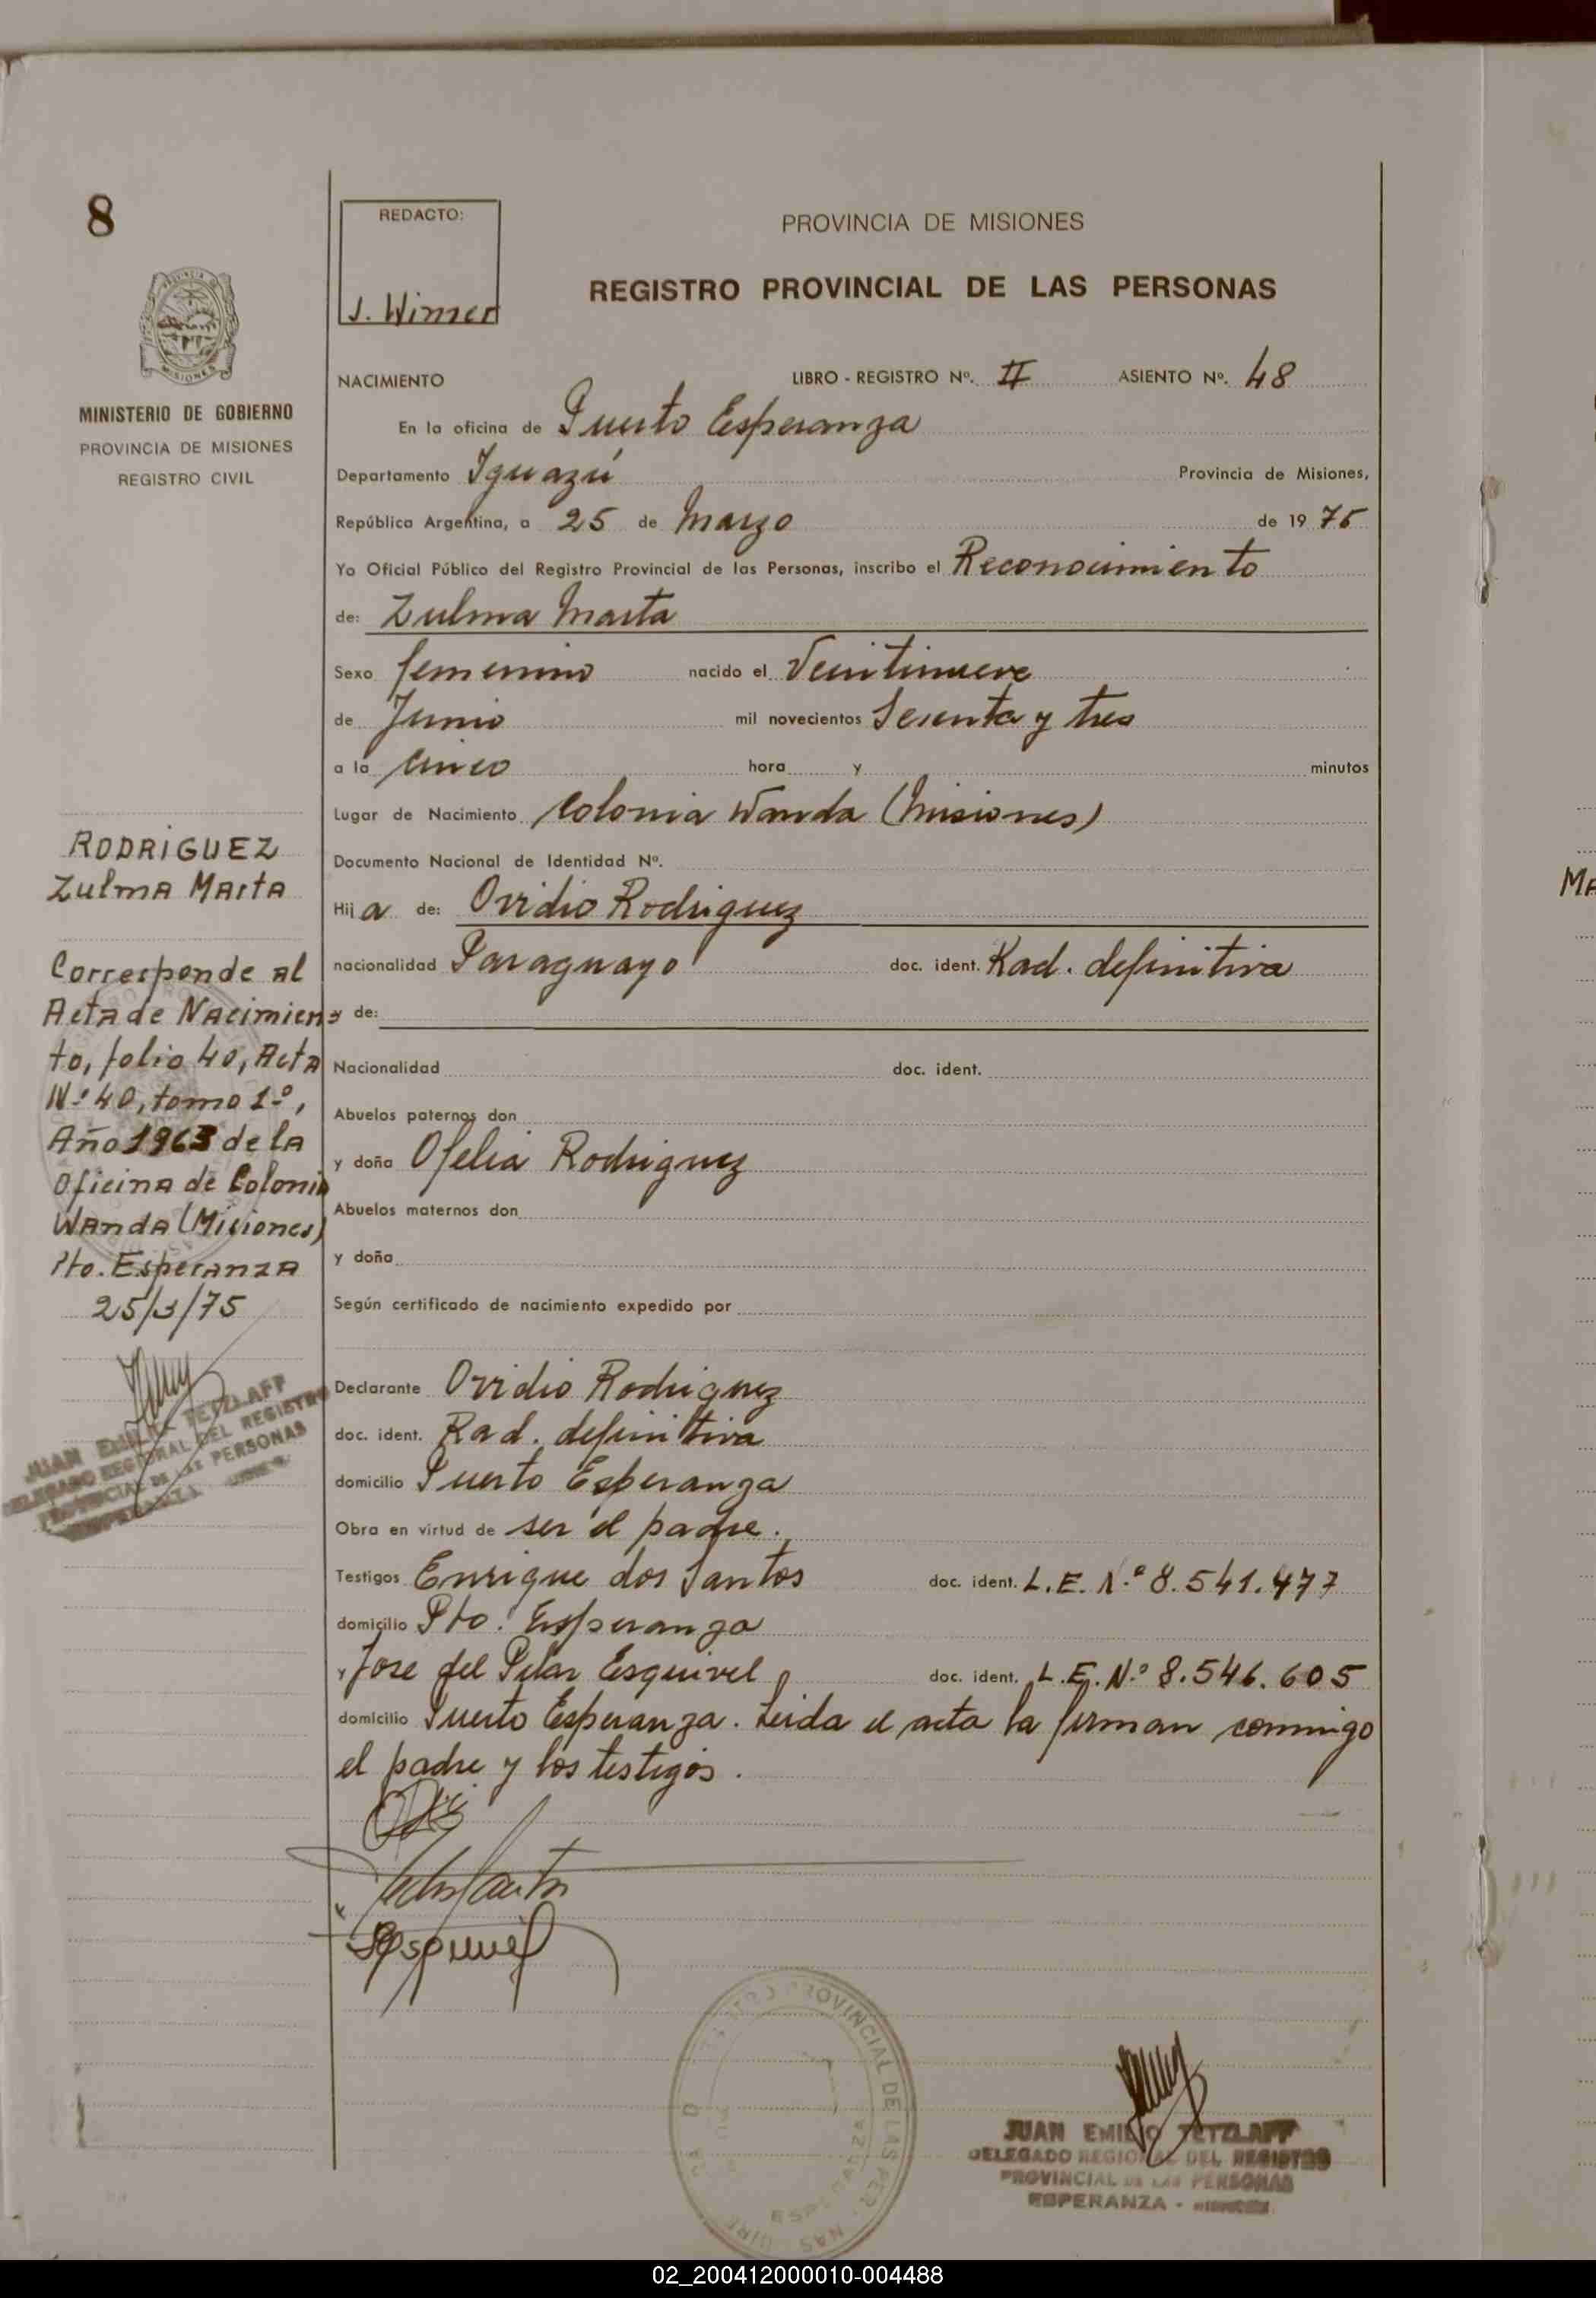 8
REDACTO:
J. Winzer
PROVINCIA DE MISIONES
REGISTRO PROVINCIAL DE LAS PERSONAS
MISIONES
MINISTERIO DE GOBIERNO
PROVINCIA DE MISIONES
REGISTRO CIVIL
NACIMIENTO LIBRO - REGISTRO Nº. II ASIENTO Nº. 48
En la oficina de Puerto Esperanza
Departamento Iguazú Provincia de Misiones,
República Argentina, a 25 de Marzo de 19 75
Yo Oficial Público del Registro Provincial de las Personas, inscribo el Reconocimiento
de: Zulma Marta
Sexo femenino nacido el Veintinueve
de Junio mil novecientos Sesenta y tres
a la cinco hora y minutos
Lugar de Nacimiento Colonia Wanda (Misiones)
Documento Nacional de Identidad Nº.
Hija de: Ovidio Rodriguez
nacionalidad Paraguayo doc. ident. Rad. definitiva
y de:
Nacionalidad doc. ident.
Abuelos paternos don
y doña Ofelia Rodriguez
Abuelos maternos don
y doña
Según certificado de nacimiento expedido por
Declarante Ovidio Rodriguez
doc. ident. Rad. definitiva
domicilio Puerto Esperanza
Obra en virtud de ser el padre.
Testigos Enrique dos Santos doc. ident. L.E. Nº 8.541.477
domicilio Pto. Esperanza
y Jose del Pilar Esquivel doc. ident. L.E.Nº 8.546.605
domicilio Puerto Esperanza. Leida el acta la firman conmigo
el padre y los testigos.
RODRIGUEZ
Zulma Marta
Corresponde al
Acta de Nacimien
to, folio 40, Acta
Nº 40, tomo 1º,
Año 1963 de la
Oficina de Colonia
Wanda (Misiones)
Pto. Esperanza
25/3/75
JUAN EMILIO TETZLAFF
DELEGADO REGIONAL DEL REGISTRO
PROVINCIAL DE LAS PERSONAS
ESPERANZA
Esquivel
PROVINCIAL DE LAS PER
ESPERANZA
JUAN EMILIO TETZLAFF
DELEGADO REGIONAL DEL REGISTRO
PROVINCIAL DE LAS PERSONAS
ESPERANZA - MISIONES
Ma
02_200412000010-004488